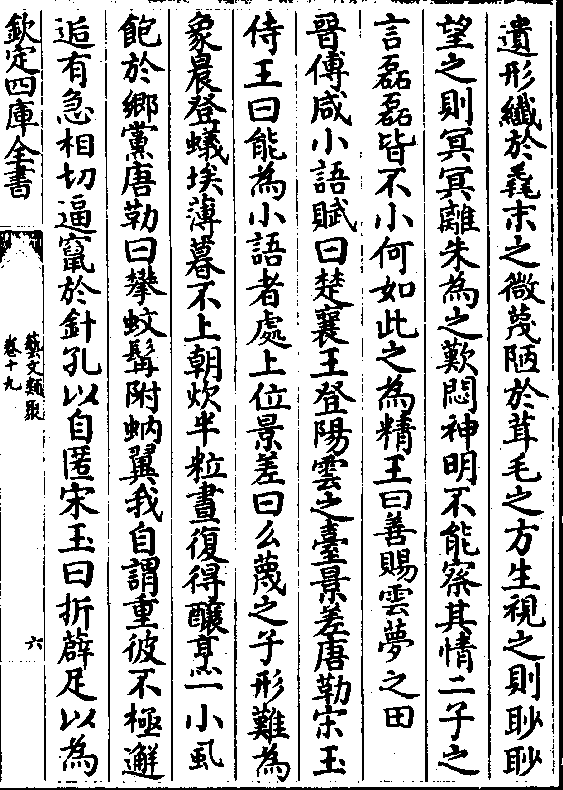 遺形纎於毳末之微蔑陋於茸毛之方生視之則眇眇
望之則冥冥離朱為之歎悶神明不能察其情二子之
言磊磊皆不小何如此之為精王曰善賜雲夢之田
晉傅咸小語賦曰楚襄王登陽雲之臺景差唐勒宋玉
侍王曰能為小語者處上位景差曰么蔑之子形難為
象晨登蟻埃薄暮不上朝炊半粒晝復得釀烹一小虱
飽於鄉黨唐勒曰攀蚊髯附蚋翼我自謂重彼不極邂
逅有急相切逼竄於針孔以自匿宋玉曰折薜足以為
欽定四庫全書
藝文類聚
卷十九
六